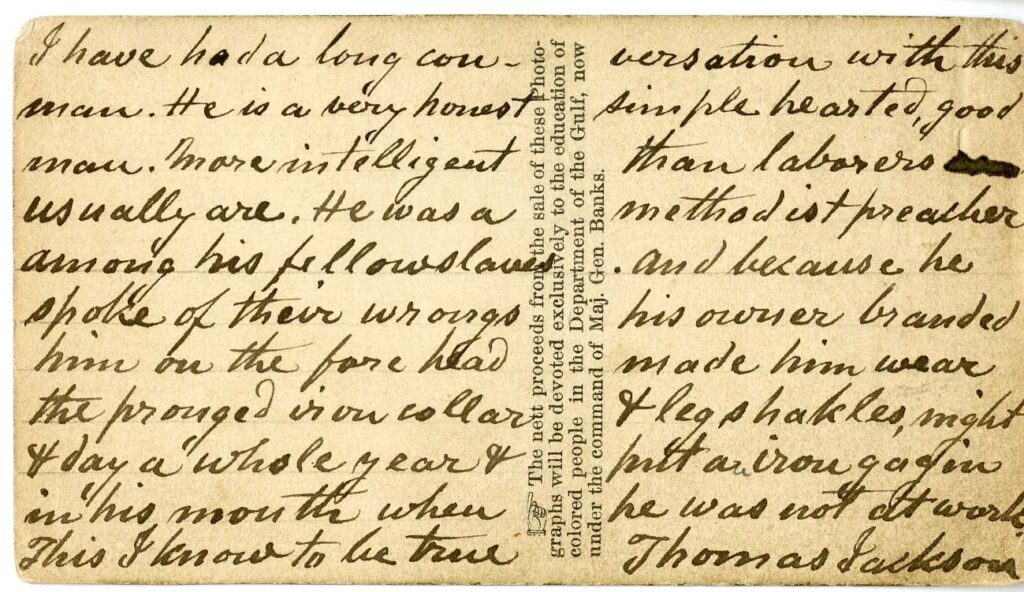 I have had a long con- versation with this
man. He is a very honest simple hearted, good
man. More intelligent than laborers
usually are. He was a methodist preacher
among his fellowslaves. And because he
spoke of their wrongs his owner branded
him on the fore head made him wear
the pronged iron collar & leg shakles, night
& day a whole year & put an iron gag in
in his mouth when he was not at work.
This I know to be true Thomas Jackson
☞ The nett proceeds from the sale of these Photo-
graphs will be devoted exclusively to the education of
colored people in the Department of the Gulf, now
under the command of Maj. Gen. Banks.